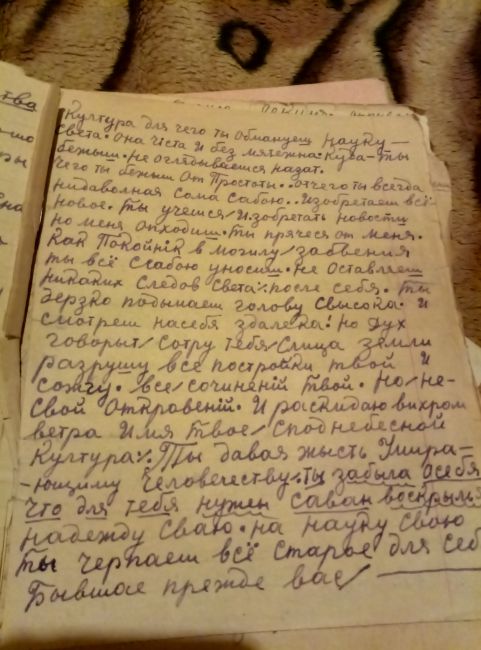 ства
Култура для чего ты обмануеш науку—
Света. Она чіста и без мятежна: Куда-ты
бежыш. не оглядываешся назат.
чего ты бежыш от Простоты.. отчего ты всегда
нидаволная сома сабою.. Изобретаеш всё
новое. ты учешся/ Изобретать новости
но меня отходиш. ты прячеся от меня.
как Покойнік в могилу/ забвения
ты всё ссабою уносиш. не оставляеш
никаких следов света:/ после себя. ты
дерзко подымаеш голову свысока. и
смотреш насебя здалека! но дух
говорыт/ сотру тебя/ Слица земли
разрушу все постройки твой и
сожгу. все/ сочинений твой. Но/ не-
свой откровеній. И раскидаю вихром
ветра имя твое/ Споднебесной
култура:/. Ты давая жысть Умира-
-ющиму Человечеству:/ ты забыла осебя
что для тебя нужен саван воскрылья
надежду сваю. на науку свою
ты черпаеш всё старое для себ
Бывшае прежде вас/